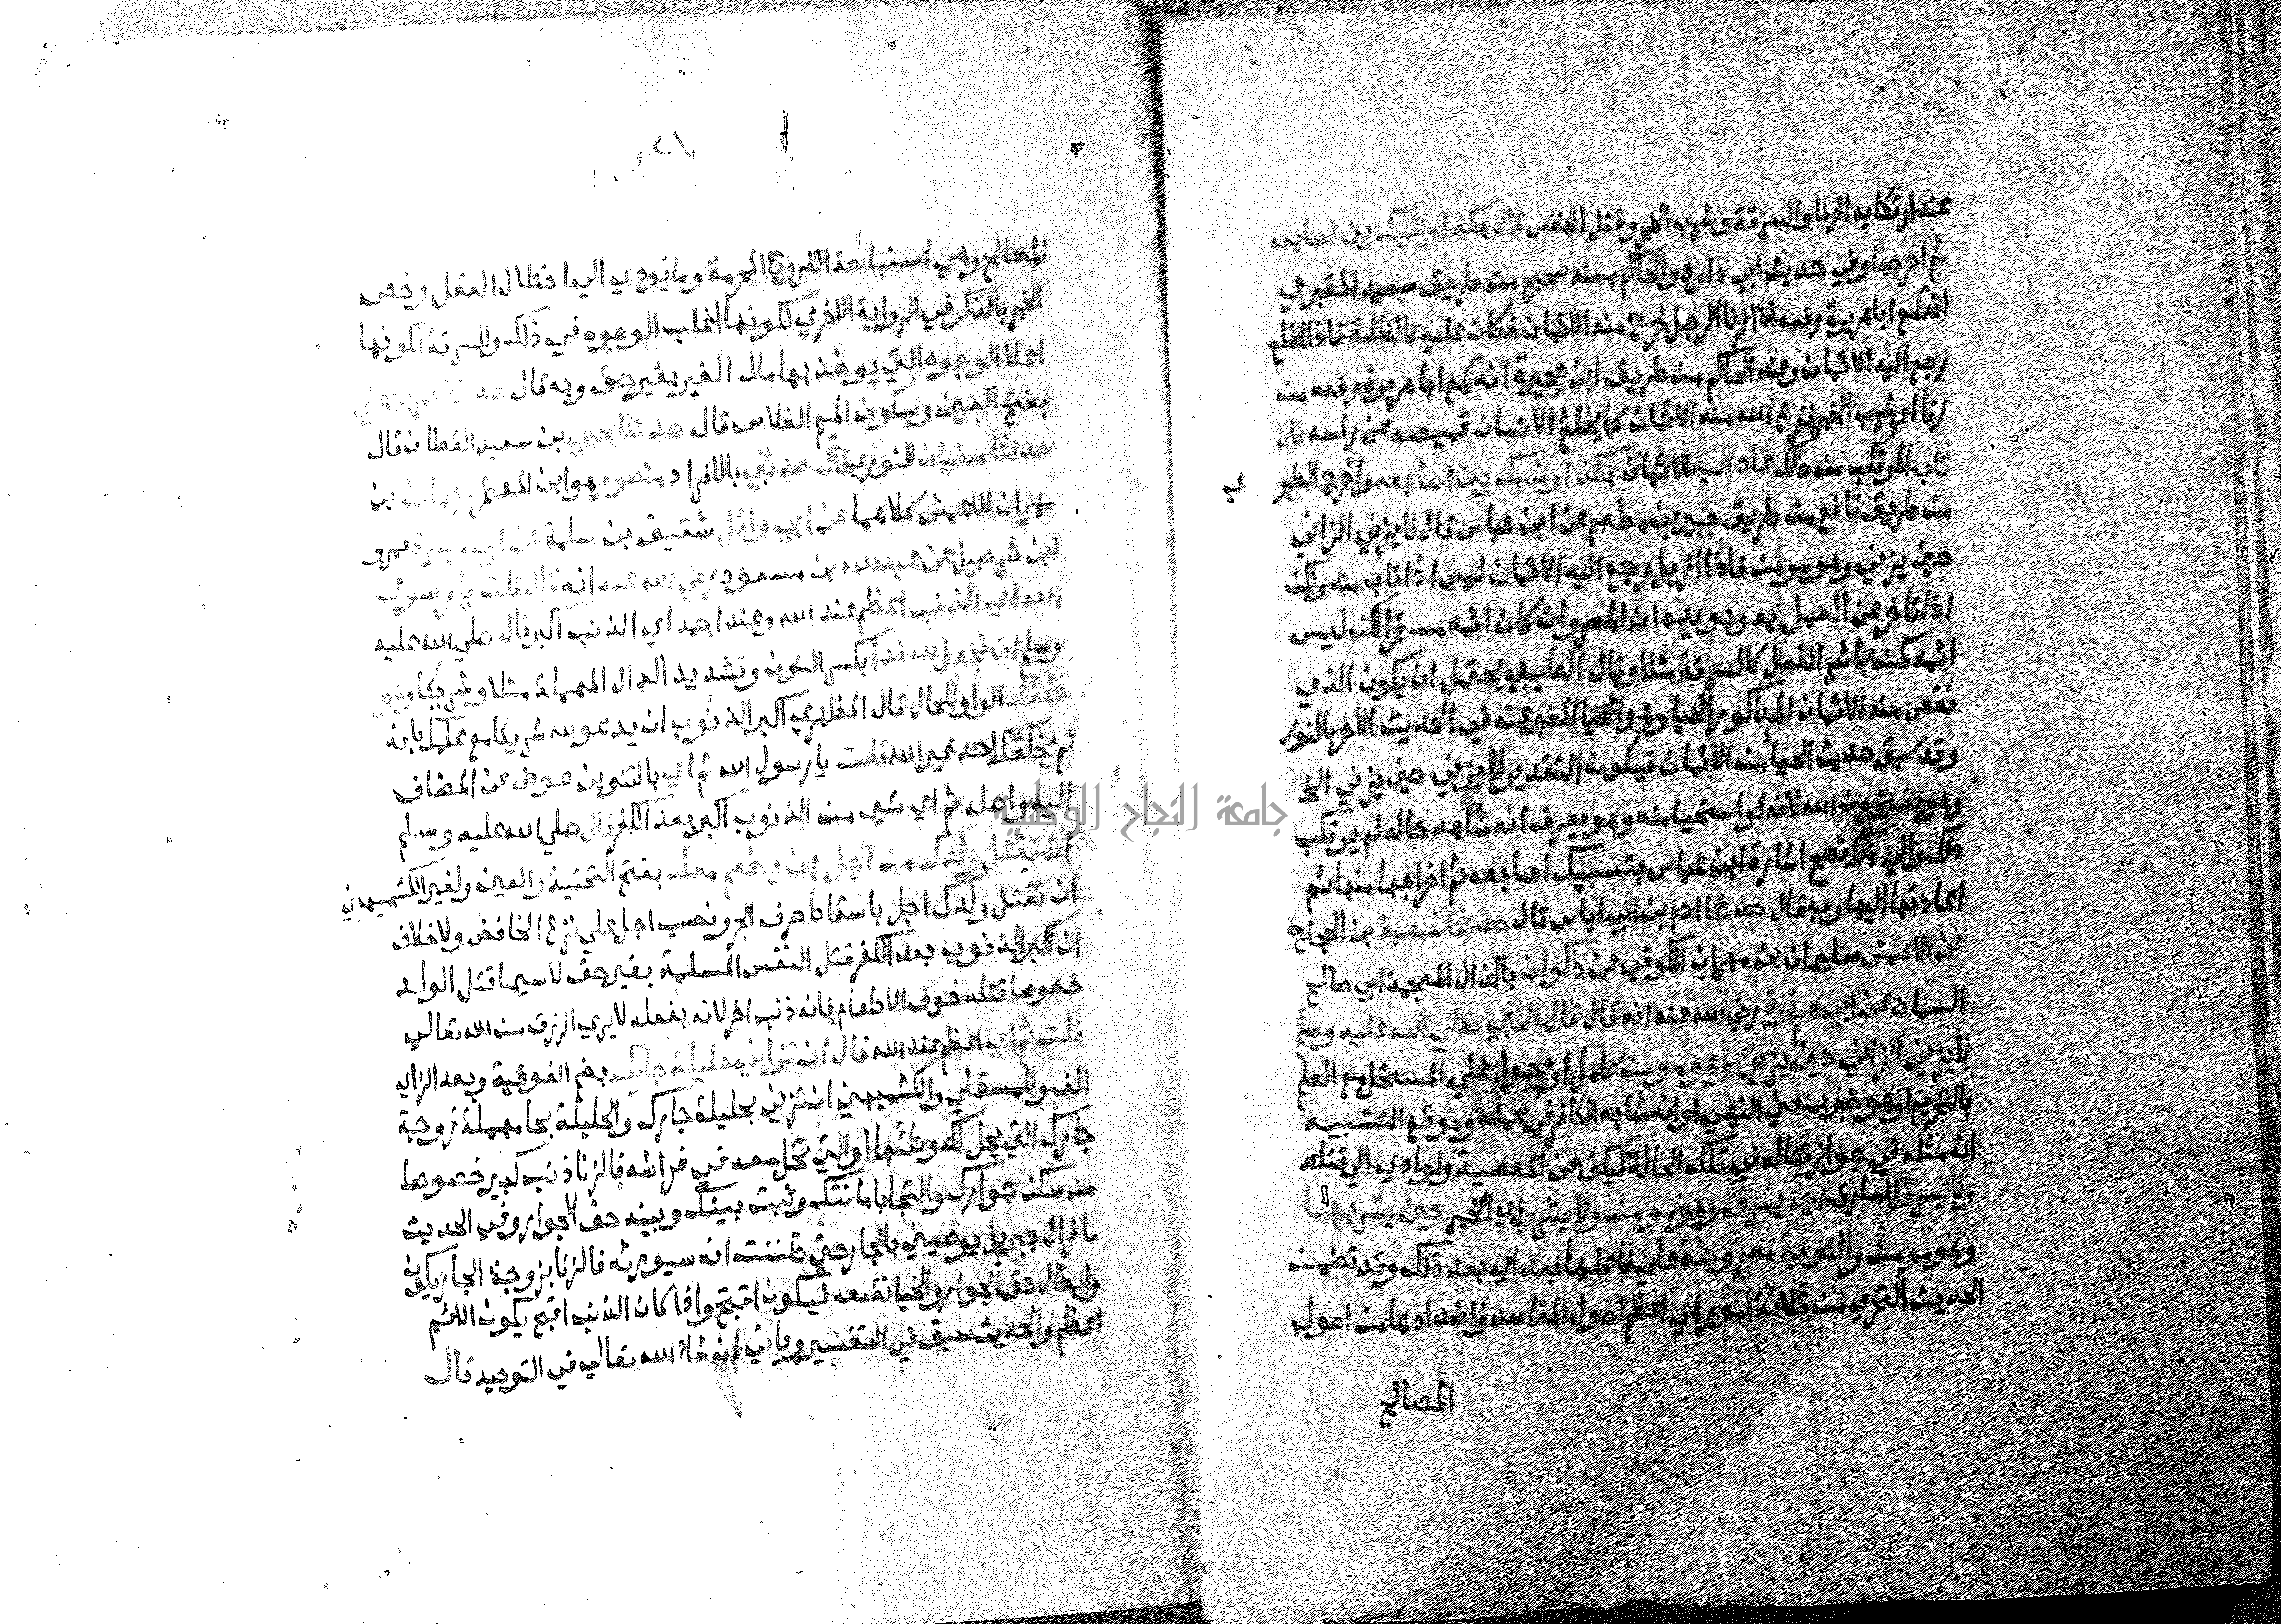 عند ارتكابه الزنا والسرقة وشرب الخمر وقتل النفس قال هكذا وشبك بين اصابعه
ثم اخرجها وفي حديث ابي داود والحاكم بسند صحيح من طريق سعيد المقبري
انه سمع ابا هريرة رفعه اذا زنا الرجل خرج منه الايمان فكان عليه كالظلة فاذا اقلع
رجع اليه الايمان وعند الحاكم من طريق ابن حجيرة انه سمع ابا هريرة رفعه من
زنا او شرب الخمر نزع الله منه الايمان كما يخلع الانسان قميصه عن راسه فان
تاب المرتكب من ذلك عاد اليه الايمان هكذا وشبك بين اصابعه واخرج الطبري
من طريق نافع من طريق جبير بن مطعم عن ابن عباس قال لا يزني الزاني
حين يزني وهو مومن فاذا ازيل رجع اليه الايمان ليس اذا تاب منه ولكن
اذا تاخر عن العمل به ويويده ان المصر وان كان اثمه مستمرا لكن ليس
اثمه كمن باشر الفعل كالسرقة مثلا وقال الطيبي يحتمل ان يكون الذي
نقص منه الايمان المذكور الحيا وهو المعبر عنه في الحديث الاخر بالنور
وقد سبق حديث الحيا من الايمان فيكون التقدير لا يزني حين يزني الخ
وهو يستحي من الله لانه لو استحيا منه وهو يعرف انه شاهد حاله لم يرتكب
ذلك والي ذلك تصح اشارة ابن عباس بتشبيك اصابعه ثم اخراجها منها ثم
اعادتها اليها وبه قال حدثنا ادم بن ابي اياس قال حدثنا شعبة بن الحجاج
عن الاعمش سليمان بن مهران الكوفي عن ذكوان بالذال المعجمة ابي صالح
السمان عن ابي هريرة رضي الله عنه انه قال قال النبي صلي الله عليه وسلم
لا يزني الزاني حين يزني وهو مومن كامل او محمول علي المستحل مع العلم
بالتحريم او هو خبر بمعني النهي او انه شابه الكافر في عمله وموقع التشبيه
انه مثله في جواز قتاله في تلك الحالة ليكف عن المعصية ولو ادي الي قتله
ولا يسرق السارق حين يسرق وهو مومن ولا يشرب اي الخمر حين يشربها
وهو مومن والتوبة معروضة علي فاعلها بعد اي بعد ذلك وقد تضمن
الحديث التحري من ثلاثة امور هي اعظم اصول المفاسد واضدادها من اصول
المصالح
٢١
المصالح وهي استباحة الفروج المحرمة وما يؤدي الي اختلال العقل وخص
الخمر بالذكر في الرواية الاخري لكونها اغلب الوجوه في ذلك والسرقة لكونها
اغلا الوجوه التي يوخذ بها مال الغير بغير حق وبه قال حدثنا عمرو بن علي
بفتح العين وسكون الميم الفلاس قال حدثنا يحيي بن سعيد القطان قال
حدثنا سفيان الثوري قال حدثني بالافراد منصور هو ابن المعتمر سليمان بن
مهران الاعمش كلاهما عن ابي وائل شقيق بن سلمة عن ابي ميسرة عمرو
ابن شرحبيل عن عبد الله بن مسعود رضي الله عنه انه قال قلت يا رسول
الله اي الذنب اعظم عند الله وعند احمد اي الذنب اكبر قال صلي الله عليه
وسلم ان تجعل لله ندا بكسر النون وتشديد الدال المهملة مثلا وشريكا وهو
خلقك الواو للحال قال المظهري اكبر الذنوب ان يدعو لله شريكا مع علمك بانه
لم يخلقك احد غير الله قلت يا رسول الله ثم اي بالتنوين عوض عن المضاف
اليه واصله ثم اي شي من الذنوب اكبر بعد الكفر قال صلي الله عليه وسلم
ان تقتل ولدك من اجل ان يطعم معك بفتح التحتية والعين ولغير الكشميهني
ان تقتل ولدك اجل باسقاط حرف الجر ونصب اجل علي نزع الخافض ولا خلاف
ان اكبر الذنوب بعد الكفر قتل النفس المسلمة بغير حق لا سيما قتل الولد
خصوصا قتله خوف الاطعام فانه ذنب اخر لانه بفعله لا يري الرزق من الله تعالي
قلت ثم اي اعظم عند الله قال ان تزاني حليلة جارك بضم الفوقية وبعد الزاي
الف وللمستملي والكشميهني ان تزني بحليلة جارك والحليلة بحا مهملة زوجة
جارك التي يحل له وطئها او التي تحل معه في فراشه فالزنا ذنب كبير خصوصا
من سكن جوارك والتجا بامانتك وثبت بينك وبينه حق الجوار وفي الحديث
ما زال جبريل يوصيني بالجار حتي ظننت انه سيورثه فالزنا بزوجة الجار يكون
وابطال حق الجوار والخيانة معه فيكون اقبح واذا كان الذنب اقبح يكون الاثم
اعظم والحديث سبق في التفسير وياتي ان شاء الله تعالي في التوحيد قال
جامعة النجاح الوطنية